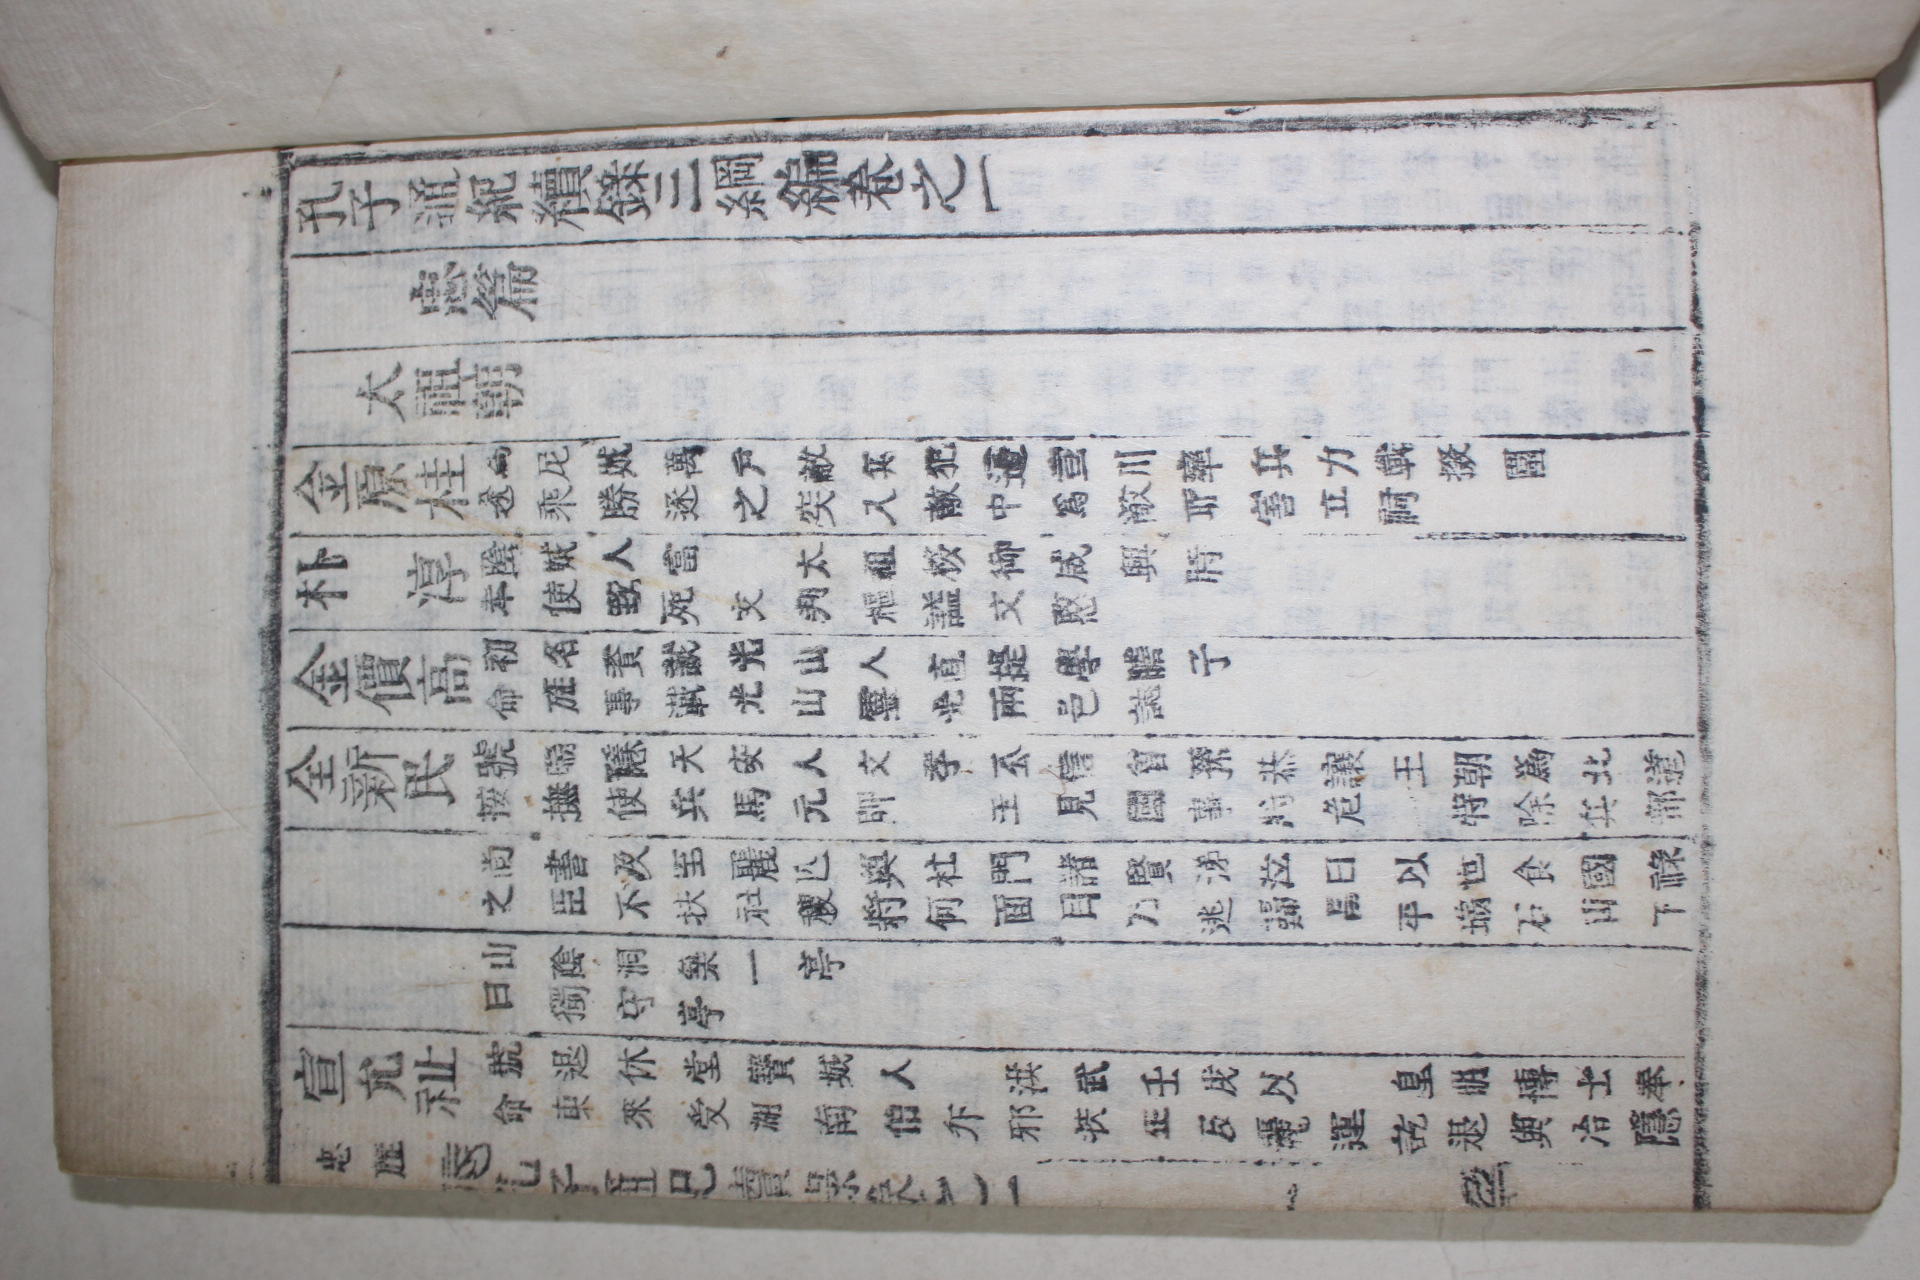 孔子通紀續錄三綱編卷之一
忠篇
太祖朝
金原桂
爲尼城萬戶敵兵犯邊宣川率兵力戰掇圍
遂乘勝逐之突入敵中爲敵所害立祠
朴淳
陰城人官 太祖移御咸興時
奉使致死文判樞謚文愍
金價高
初名賚誠光山人直提學瞻子
命旌事載光山靈光兩邑誌
全新民
號隱天安人文孝公信曾孫恭讓王朝爲北道
按撫使兵馬元帥 王見國事將危 特除兵部
尚書及至麗亡與杜門諸賢涕泣曰以世食國祿
之臣不扶社稷將何面目乃逃歸昌平瑞石山下
山陰洞築一亭
曰獨守亭
宣允祉
號退休堂寶城人 洪武壬戌以 皇明博士奉
命東來受湖南伯斥邪扶正及麗運訖退與冶隱
忠旌
孔子通紀續錄卷之一